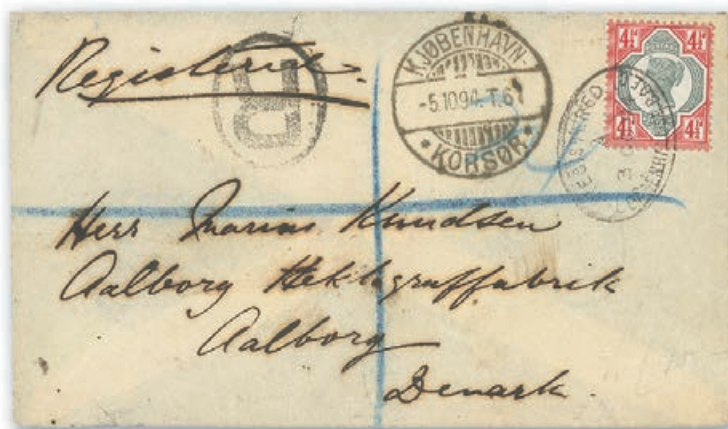 Registered.
R
KJØBENHAVN-
-5.10.94-T.6
* KORSØR *
4½ 4½
4½ 4½
REGISTERED
Herr Marius Knudsen
Aalborg Hektograffabrik
Aalborg
Denark.